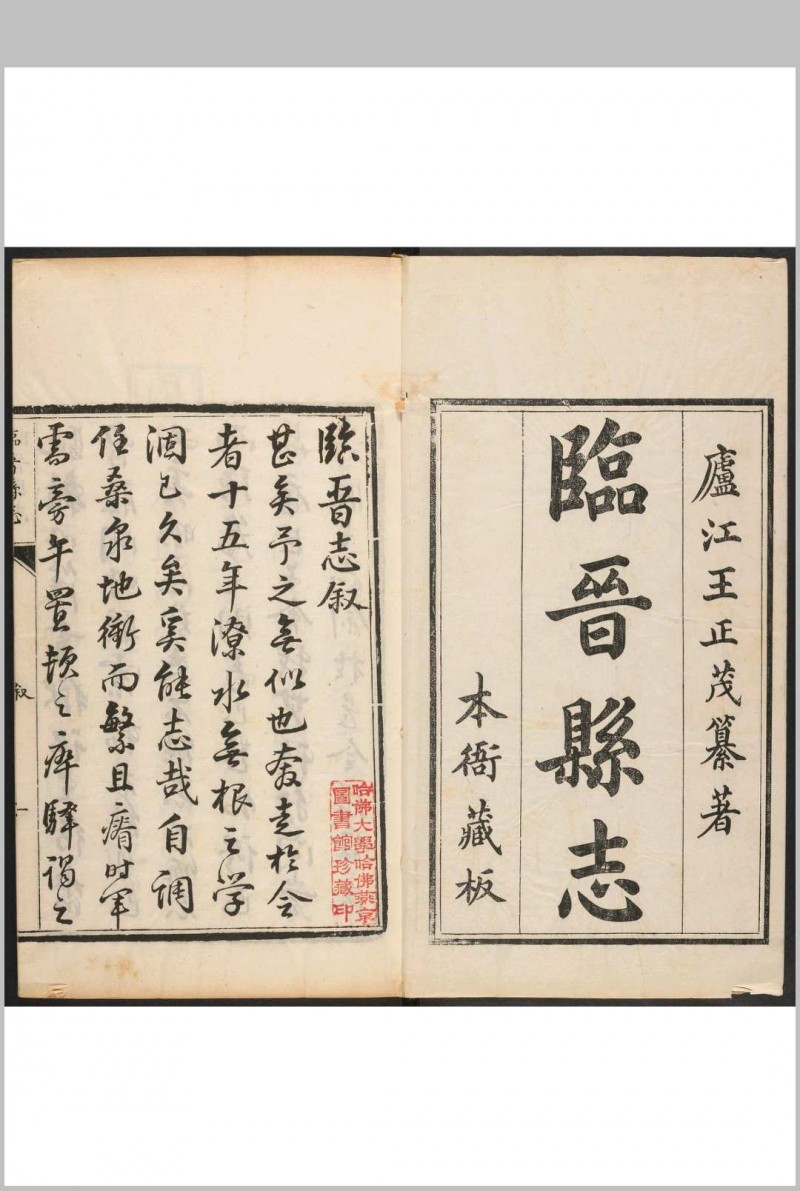 廬江王正茂纂著
臨晉縣志
本衙藏板
臨晉志叙
甚矣予之無似也奔走於令
者十五年潦水無根之學
涸已久矣奚能志哉自調
任桑泉地衝而繁且瘠時軍
需旁午置頓之瘁驛
哈佛大學哈佛燕京
圖書館珍藏印
臨晉縣志
叙
一